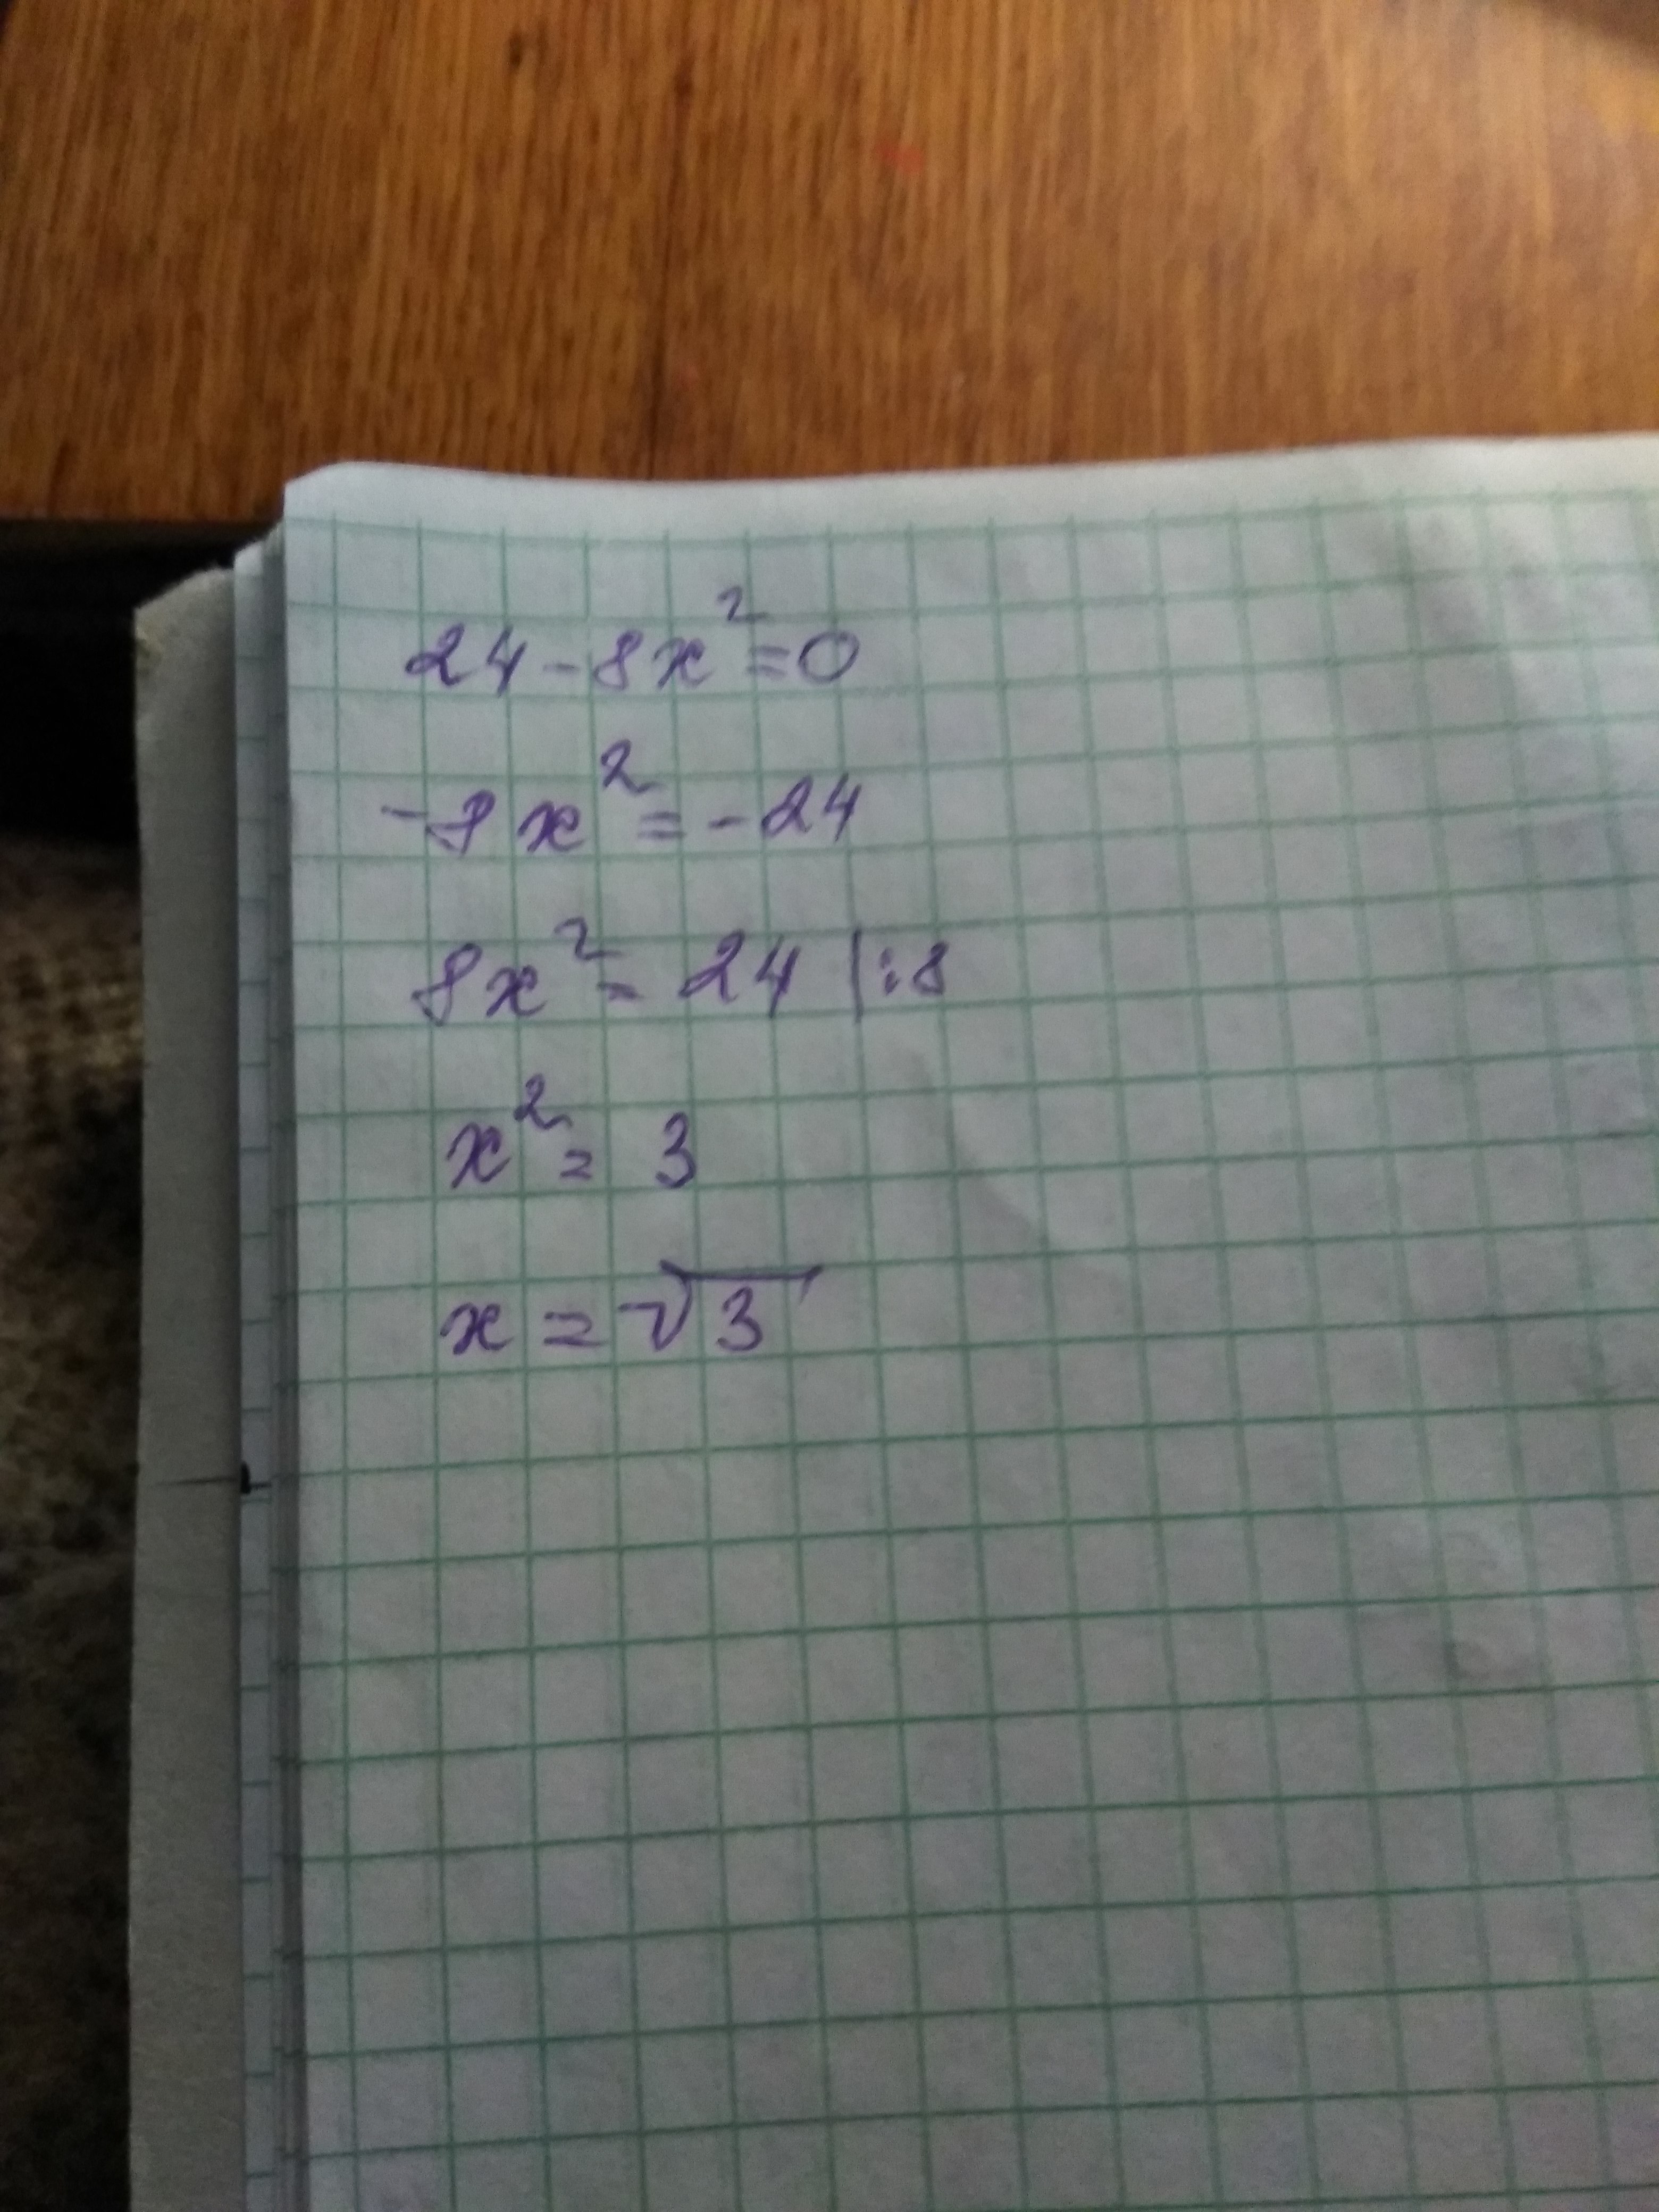 24-8x²=0
-8x²=-24
8x²=24 |:8
x²=3
x=√3